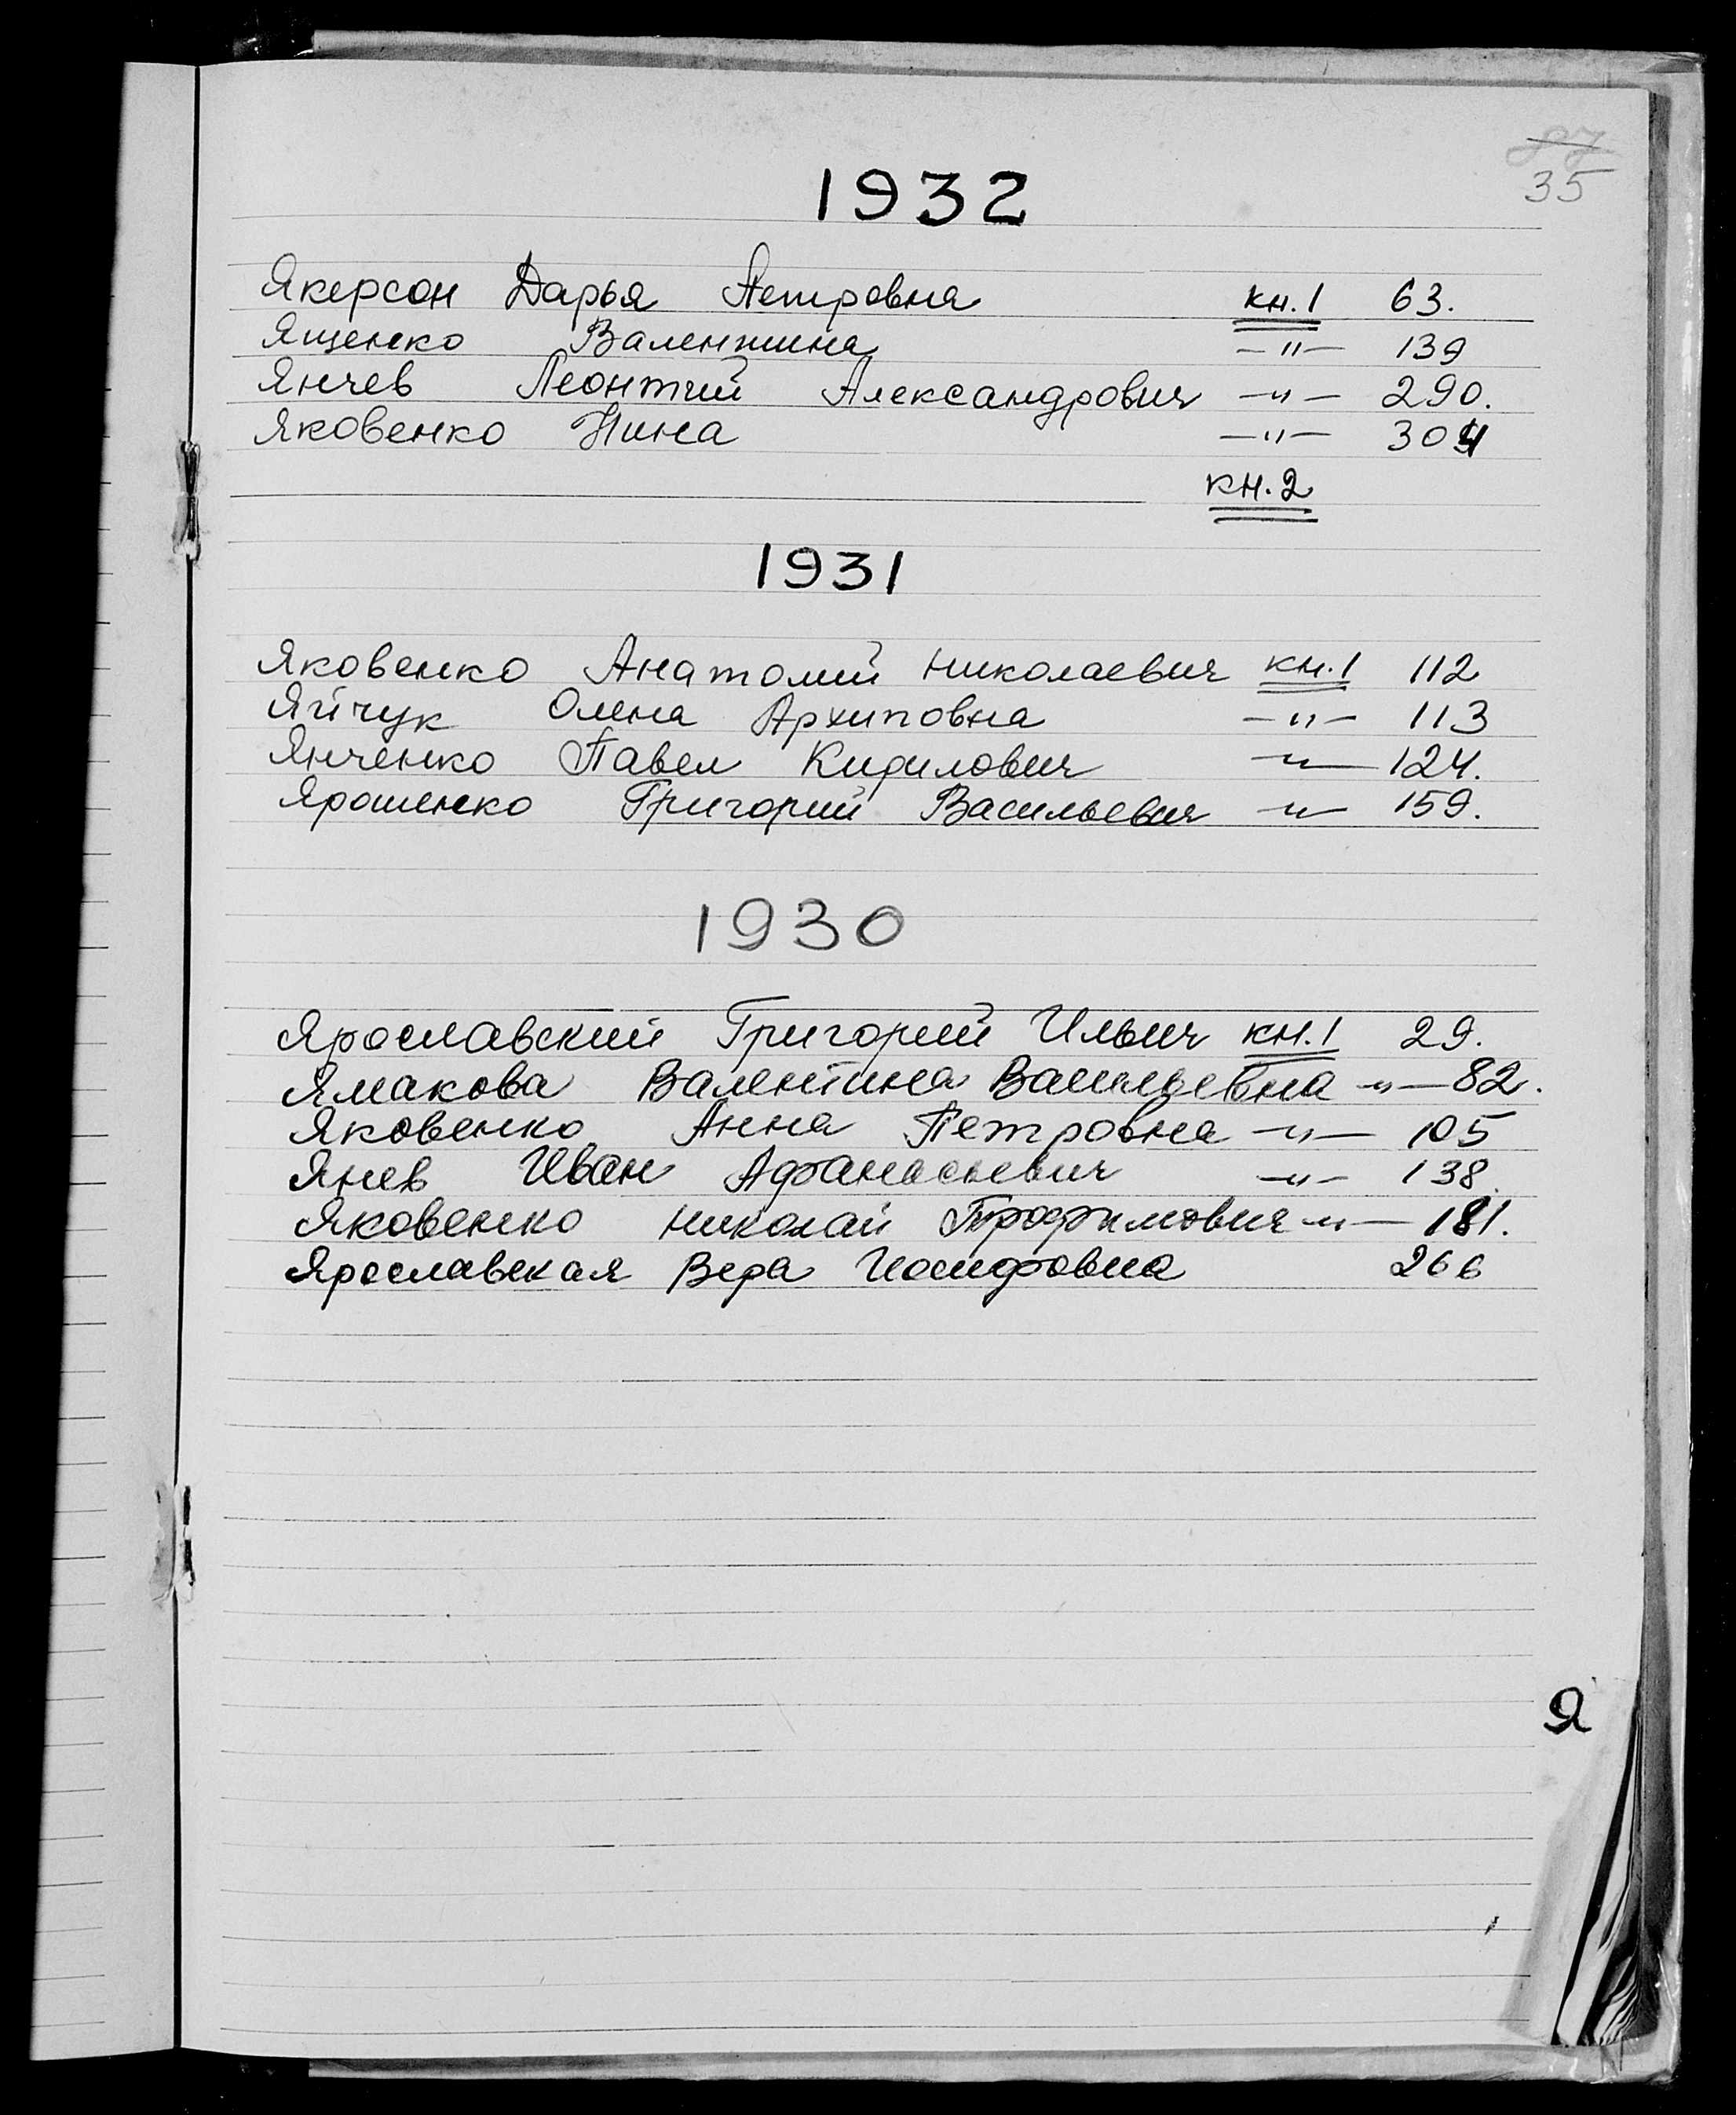 35
1932
Якерсон Дарья Петровна кн.1 63.
Ященко Валентина —"— 139
Янчев Леонтий Александрович —"— 290.
Яковенко Нина —"— 304
кн.2
1931
Яковенко Анатолий Николаевич кн.1 112
Яйчук Олена Архиповна —"— 113
Янченко Павел Кирилович —"— 124.
Ярошенко Григорий Васильевич —"— 159.
1930
Ярославский Григорий Ильич кн.1 29.
Ямакова Валентина Васильевна —"— 82.
Яковенко Анна Петровна —"— 105
Янев Иван Афанасьевич —"— 138.
Яковенко Николай Трофимович —"— 181.
Ярославская Вера Иосифовна 266
Я